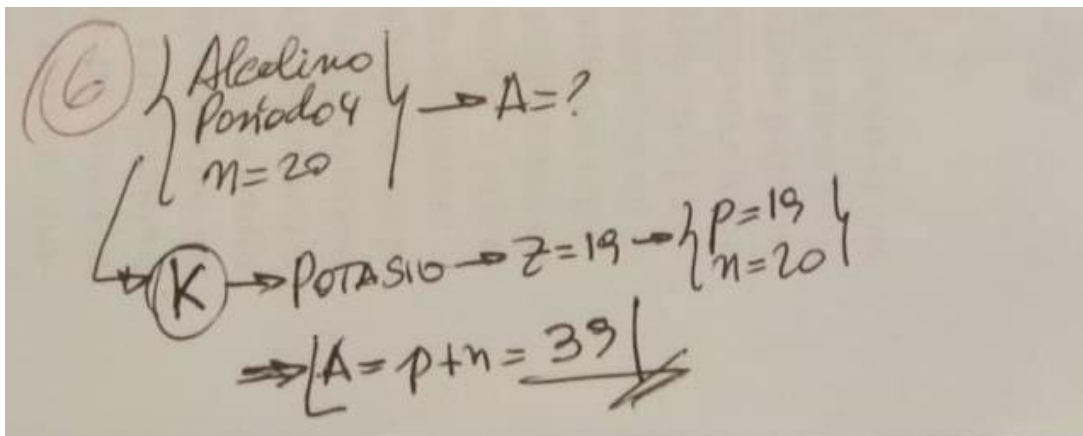 6
Alcalino
Período 4
n=20
→ A=?
K → POTASIO → Z=19 → p=19
n=20
⇒ A= p+n = 39